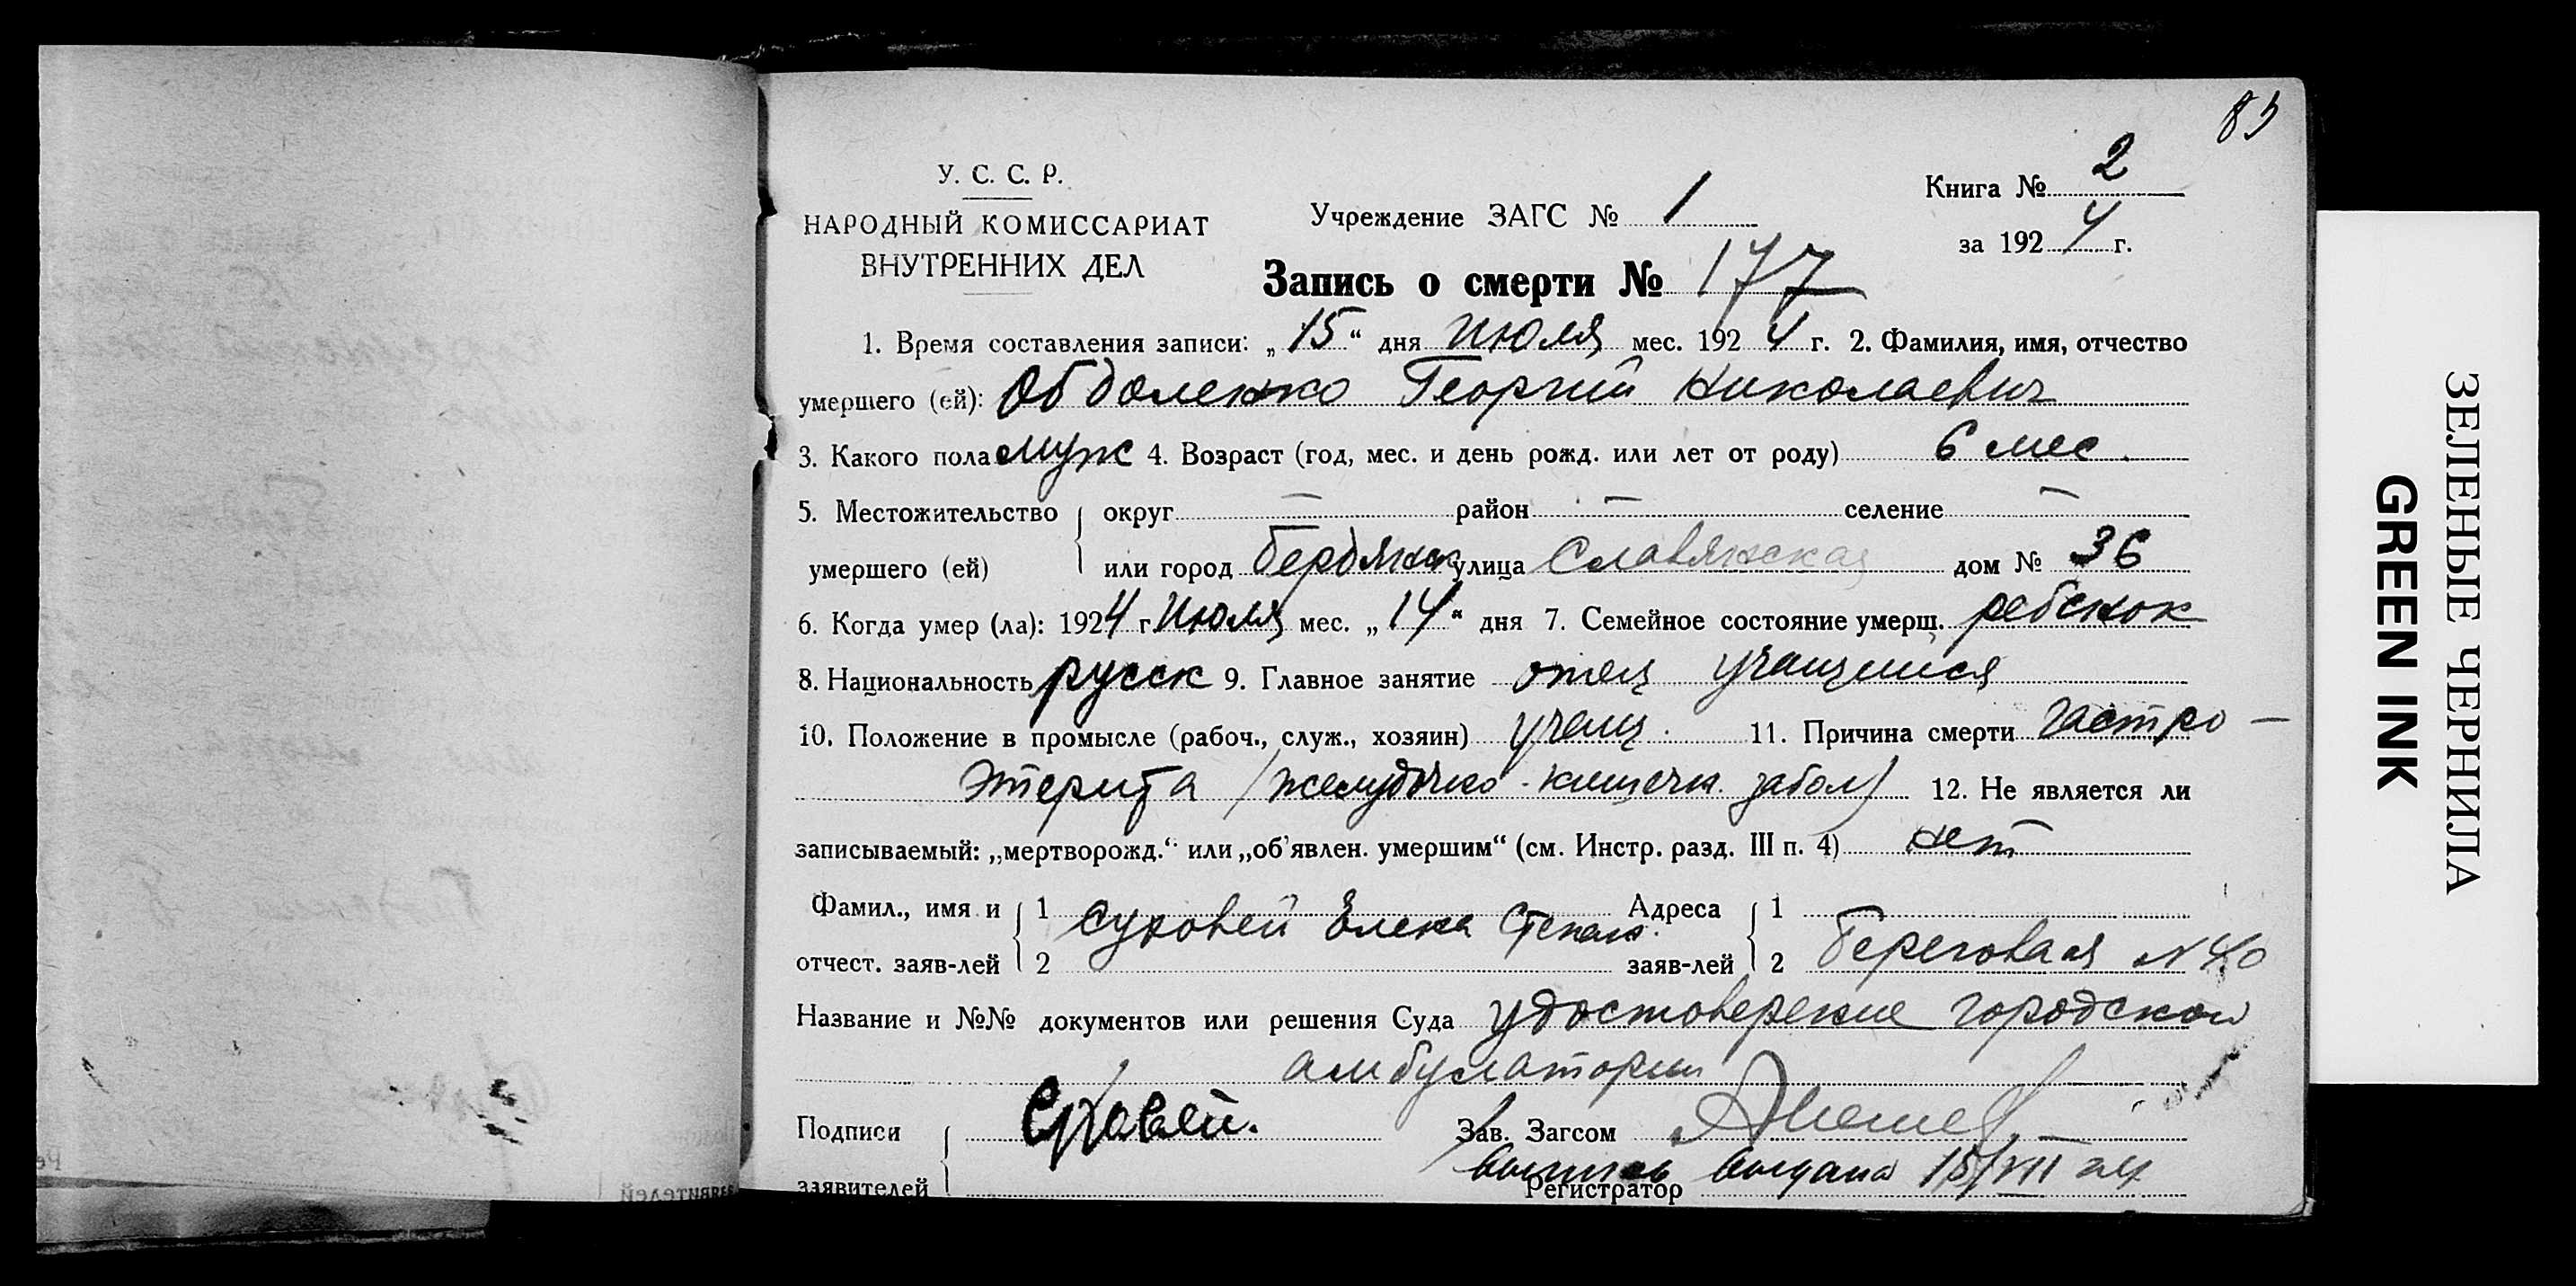 85
У. С. С. Р.
НАРОДНЫЙ КОМИССАРИАТ
ВНУТРЕННИХ ДЕЛ
Учреждение ЗАГС № 1
Книга № 2
за 1924 г.
Запись о смерти № 177
1. Время составления записи: „15“ дня июля мес. 1924 г. 2. Фамилия, имя, отчество
умершего (ей): Обдоленко Георгий Николаевич
3. Какого пола муж 4. Возраст (год, мес. и день рожд. или лет от роду) 6 мес.
5. Местожительство округ — район — селение —
умершего (ей) или город Бердянск улица Славянская дом № 36
6. Когда умер (ла): 1924 г. июля мес. „14“ дня 7. Семейное состояние умерш. ребенок
8. Национальность русск 9. Главное занятие отец учащийся
10. Положение в промысле (рабоч., служ., хозяин) учащ. 11. Причина смерти гастро-
энтерита (желудочно-кишечн. забол) 12. Не является ли
записываемый: „мертворожд.“ или „об’явлен. умершим“ (см. Инстр. разд. III п. 4) нет
Фамил., имя и 1 Суховей Елена Степан. Адреса 1
отчест. заяв-лей 2 заяв-лей 2 Береговая № 40
Название и №№ документов или решения Суда удостоверение городской
амбулатории
Подписи Суховей. Зав. Загсом
выпись выдана 15/VII 24
заявителей Регистратор
ЗЕЛЕНЫЕ ЧЕРНИЛА
GREEN INK